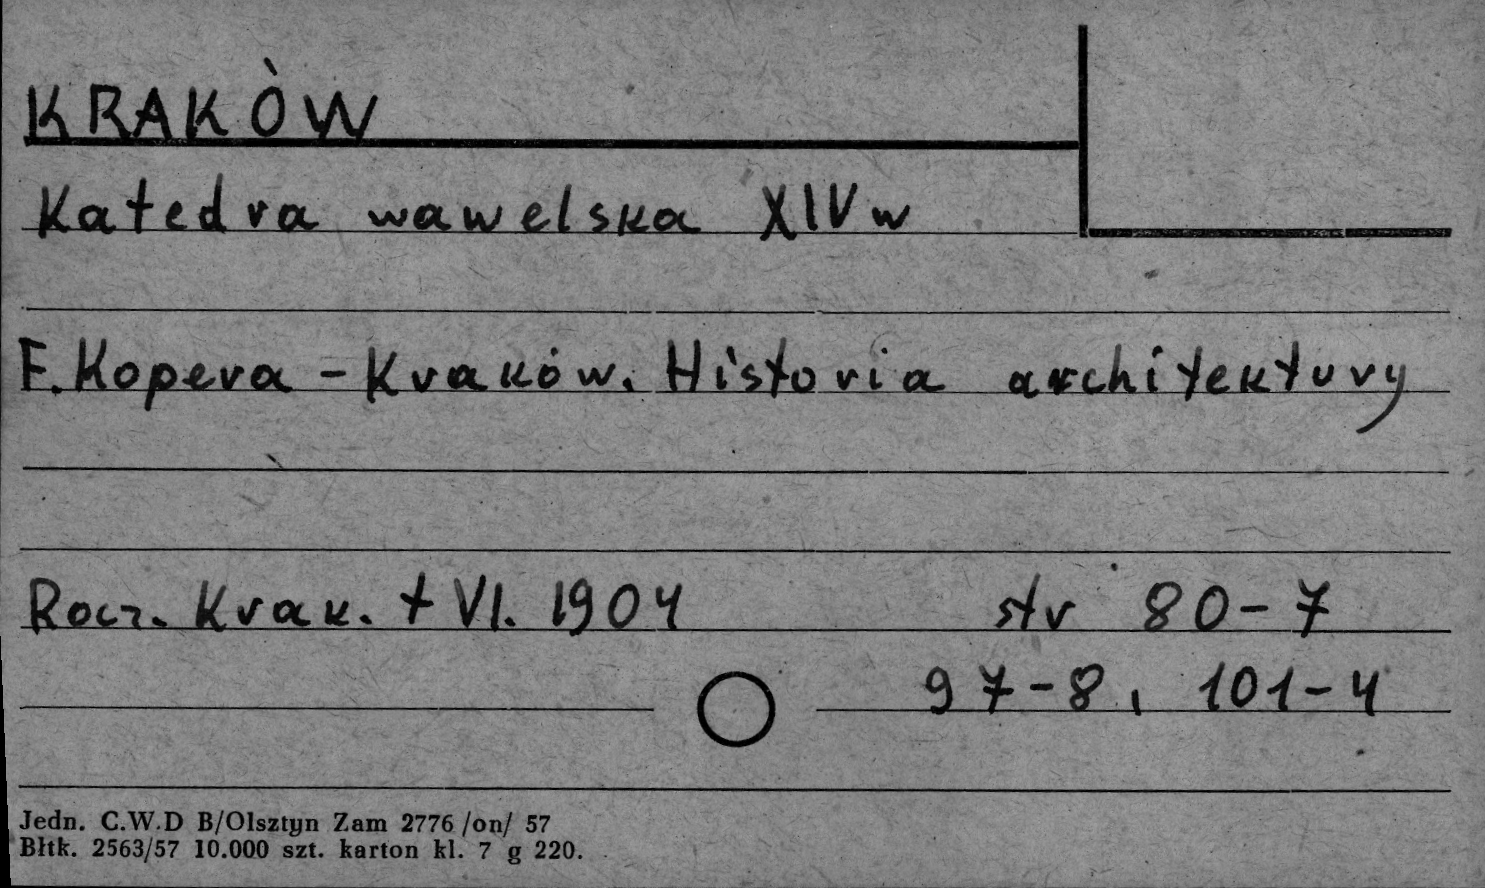 KRAKÓW
Katedra wawelska XIV w
F. Kopera - Kraków. Historia architektury
Rocz. Krak. t VI. 1904 str 80-7
97-8, 101-4
Jedn. C.W.D B/Olsztyn Zam 2776 /on/ 57
Błtk. 2563/57 10.000 szt. karton kl. 7 g 220.